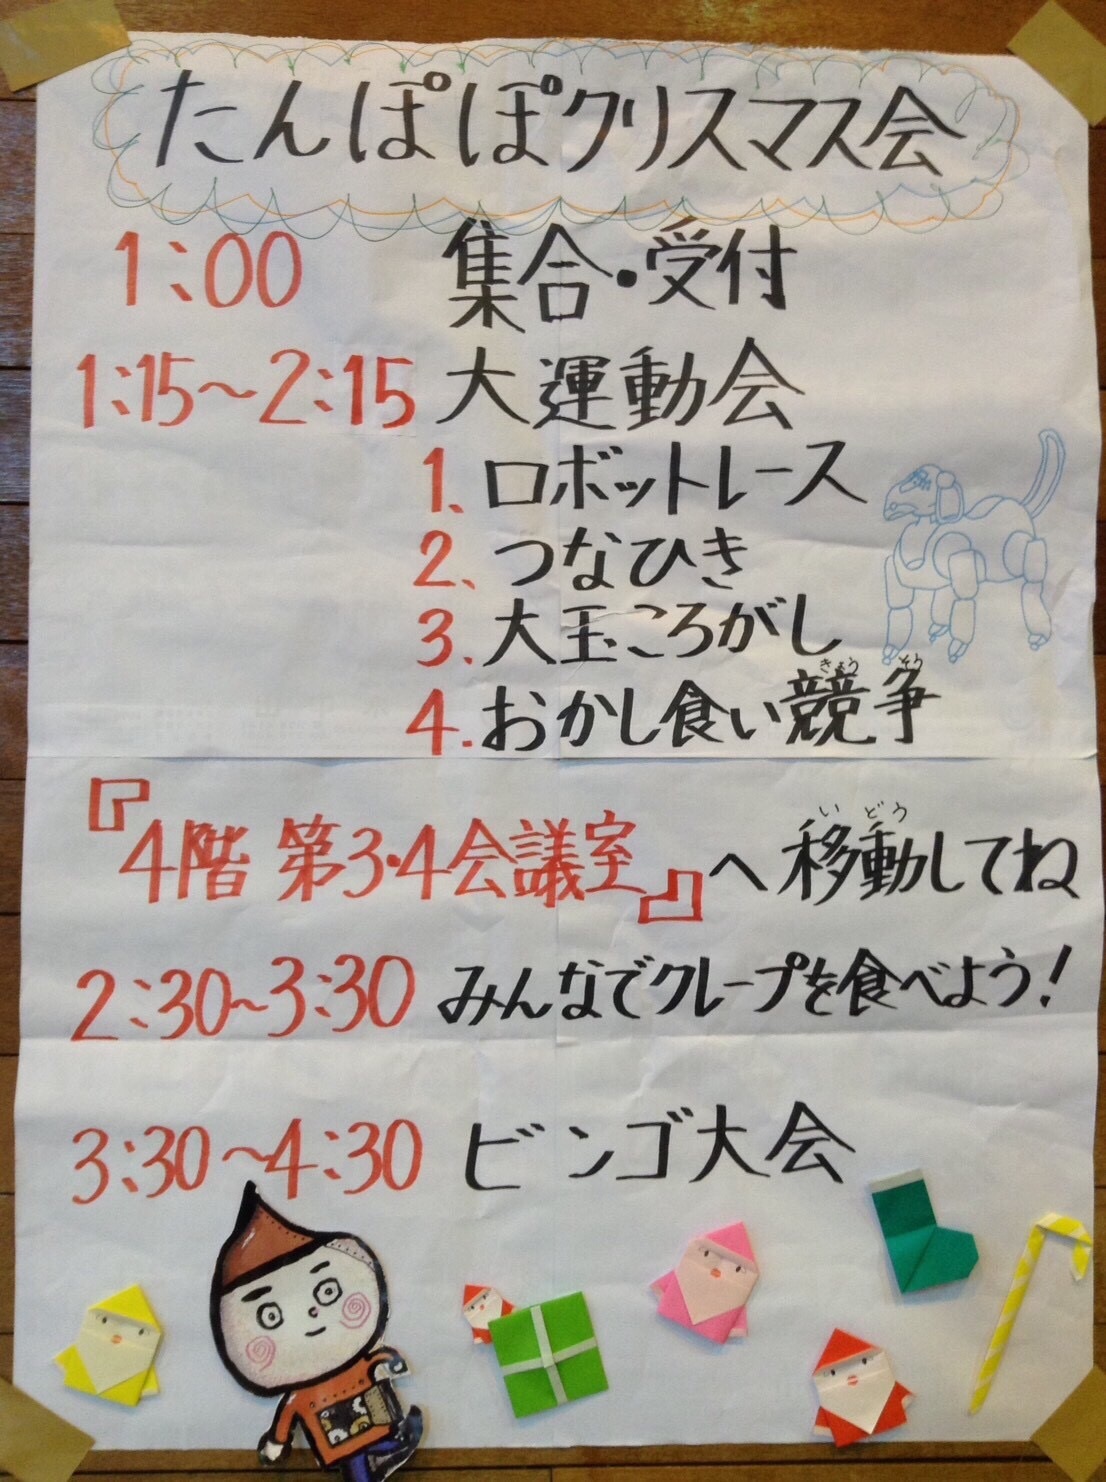 たんぽぽクリスマス会
1:00 集合・受付
1:15〜2:15 大運動会
1、ロボットレース
2、つなひき
3.大玉ころがし
きょうそう
4.おかし食い競争
いどう
『4階 第3・4会議室』へ移動してね
2:30〜3:30 みんなでクレープを食べよう!
3:30〜4:30 ビンゴ大会